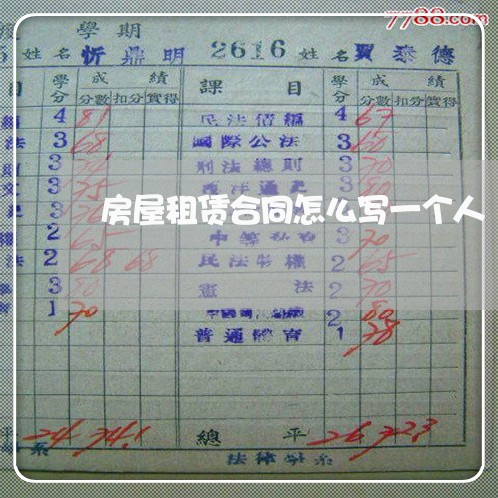 7788.com
學期
姓名 忻鼎明 2616 姓名 賈泰德
目 學分 成績 課目 學分 成績
分數 扣分 實得 分數 扣分 實得
4 81 民法債編 4 67
法 3 68 國際公法 3 60
3 刑法總則 3 70
3 75 3 80
房屋租赁合同怎么写一个人
2 65 3 70
法 2 68 68 民法物權 2 65
3 80 憲法 2 70
1 70 2 80
普通體育 1 78
平 24 74.1 總平 26 72.3
系 法律學系